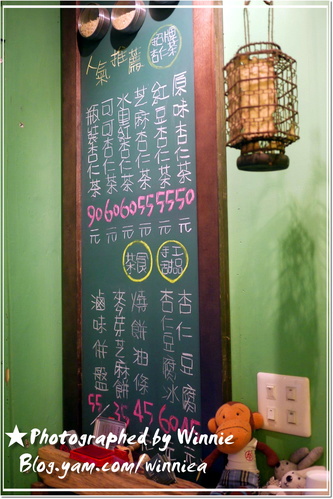 招牌
杏仁茶
人氣推薦
原味杏仁茶 50元
紅豆杏仁茶 55元
芝麻杏仁茶 55元
水果紅杏仁茶 60元
可可杏仁茶 60元
瓶裝杏仁茶 90元
手工
甜品
茶食
杏仁豆腐 45
杏仁豆腐冰 60
燒餅油條 45
麥芽芝麻餅 35
滷味併盤 55
★Photographed by Winnie
Blog.yam.com/winniea